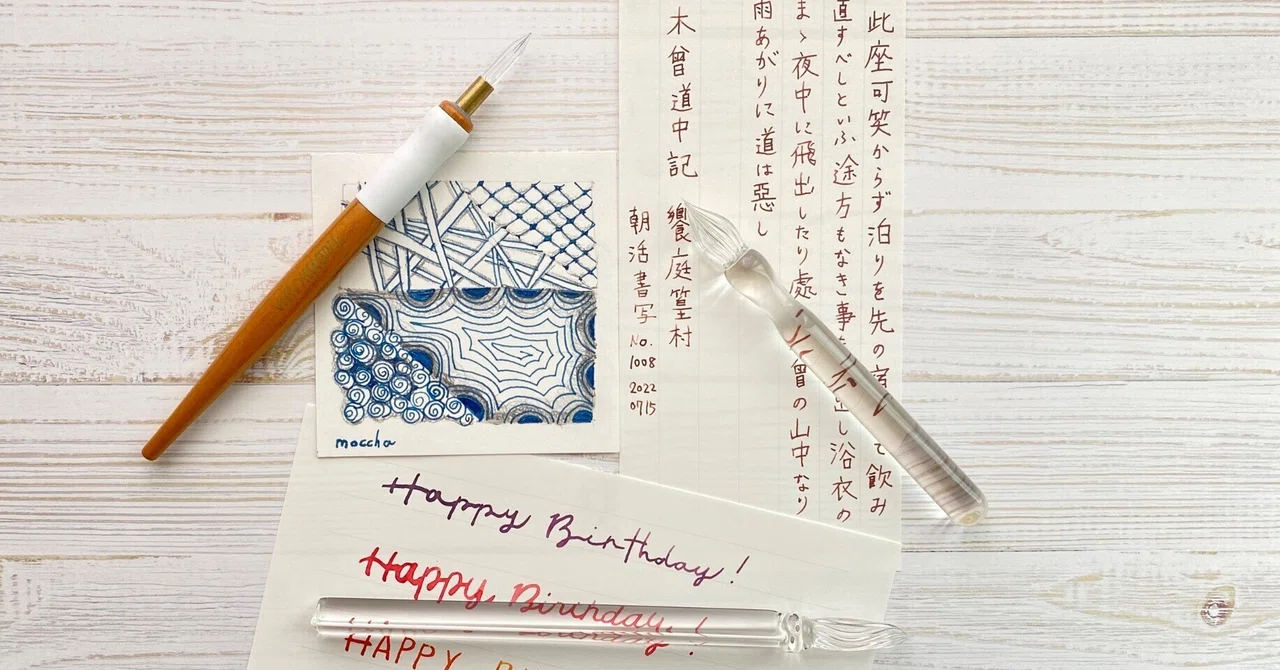 此座可笑からず泊りを先の宿て飲み
直すべしといふ途方もなき事出し浴衣の
まゝ夜中に飛出したり處曾の山中なり
雨あがりに道は惡し
木曾道中記 饗庭篁村
朝活書写 No. 1008 2022 0715
moccha
Happy Birthday!
Happy Birthday!
HAPPY